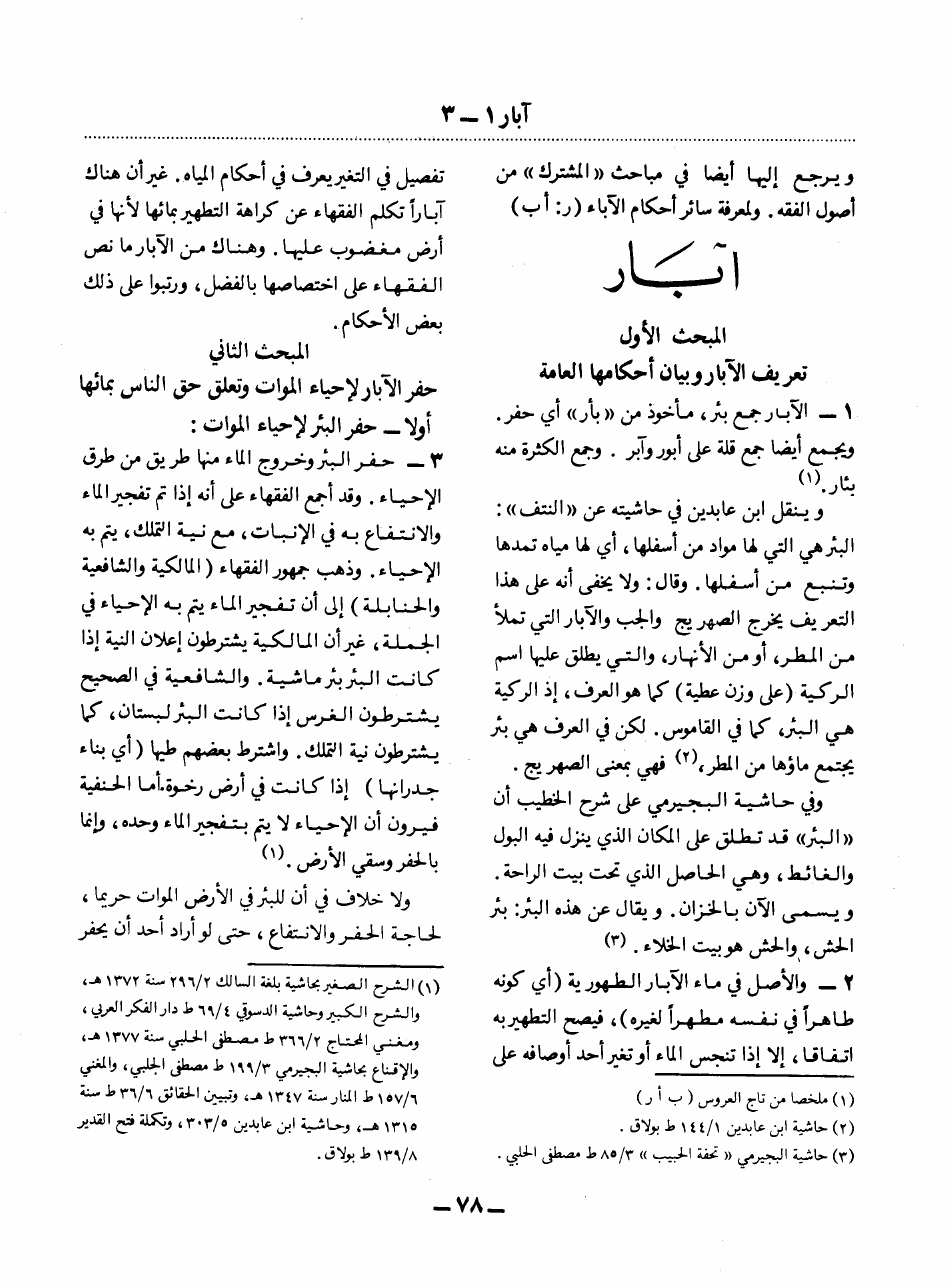 آبار ١ — ٣
ويرجع إليها أيضا في مباحث «المشترك» من
أصول الفقه. ولمعرفة سائر أحكام الآباء (ر: أب)
آبار
المبحث الأول
تعريف الآبار وبيان أحكامها العامة
١ — الآبار جمع بئر، مأخوذ من «بأر» أي حفر.
ويجمع أيضا جمع قلة على أبور وآبر . وجمع الكثرة منه
بئار.(١)
وينقل ابن عابدين في حاشيته عن «النتف»:
البئر هي التي لها مواد من أسفلها، أي لها مياه تمدها
وتنبع من أسفلها. وقال: ولا يخفى أنه على هذا
التعريف يخرج الصهريج والجب والآبار التي تملأ
من المطر، أو من الأنهار، والتي يطلق عليها اسم
الركية (على وزن عطية) كما هو العرف، إذ الركية
هي البئر، كما في القاموس. لكن في العرف هي بئر
يجتمع ماؤها من المطر،(٢) فهي بمعنى الصهريج .
وفي حاشية البجيرمي على شرح الخطيب أن
«البئر» قد تطلق على المكان الذي ينزل فيه البول
والغائط، وهي الحاصل الذي تحت بيت الراحة.
ويسمى الآن بالخزان. ويقال عن هذه البئر: بئر
الحش، والحش هو بيت الخلاء. (٣)
٢ — والأصل في ماء الآبار الطهورية (أي كونه
طاهراً في نفسه مطهراً لغيره)، فيصح التطهير به
اتفاقا، إلا إذا تنجس الماء أو تغير أحد أوصافه على
(١) ملخصا من تاج العروس (ب أ ر)
(٢) حاشية ابن عابدين ١٤٤/١ ط بولاق .
(٣) حاشية البجيرمي « تحفة الحبيب » ٨٥/٣ ط مصطفى الحلبي .
تفصيل في التغير يعرف في أحكام المياه. غير أن هناك
آباراً تكلم الفقهاء عن كراهة التطهير بمائها لأنها في
أرض مغضوب عليها. وهناك من الآبار ما نص
الفقهاء على اختصاصها بالفضل، ورتبوا على ذلك
بعض الأحكام.
المبحث الثاني
حفر الآبار لإحياء الموات وتعلق حق الناس بمائها
أولا — حفر البئر لإحياء الموات :
٣ — حفر البئر وخروج الماء منها طريق من طرق
الإحياء. وقد أجمع الفقهاء على أنه إذا تم تفجير الماء
والانتفاع به في الإنبات، مع نية التملك، يتم به
الإحياء. وذهب جمهور الفقهاء (المالكية والشافعية
والحنابلة) إلى أن تفجير الماء يتم به الإحياء في
الجملة، غير أن المالكية يشترطون إعلان النية إذا
كانت البئر بئر ماشية. والشافعية في الصحيح
يشترطون الغرس إذا كانت البئر لبستان، كما
يشترطون نية التملك. واشترط بعضهم طيها (أي بناء
جدرانها) إذا كانت في أرض رخوة.أما الحنفية
فيرون أن الإحياء لا يتم بتفجير الماء وحده، وإنما
بالحفر وسقي الأرض .(١)
ولا خلاف في أن للبئر في الأرض الموات حريما ،
لحاجة الحفر والانتفاع ، حتى لو أراد أحد أن يحفر
(١) الشرح الصغير بحاشية بلغة السالك ٢٩٦/٢ سنة ١٣٧٢ هـ،
والشرح الكبير وحاشية الدسوقي ٦٩/٤ ط دار الفكر العربي ،
ومغني المحتاج ٣٦٦/٢ ط مصطفى الحلبي سنة ١٣٧٧ هـ،
والإقناع بحاشية البجيرمي ١٩٩/٣ ط مصطفى الحلبي، والمغني
١٥٧/٦ ط المنار سنة ١٣٤٧ هـ، وتبيين الحقائق ٣٦/٦ ط سنة
١٣١٥ هـ، وحاشية ابن عابدين ٣٠٣/٥، وتكملة فتح القدير
١٣٩/٨ ط بولاق.
— ٧٨ —